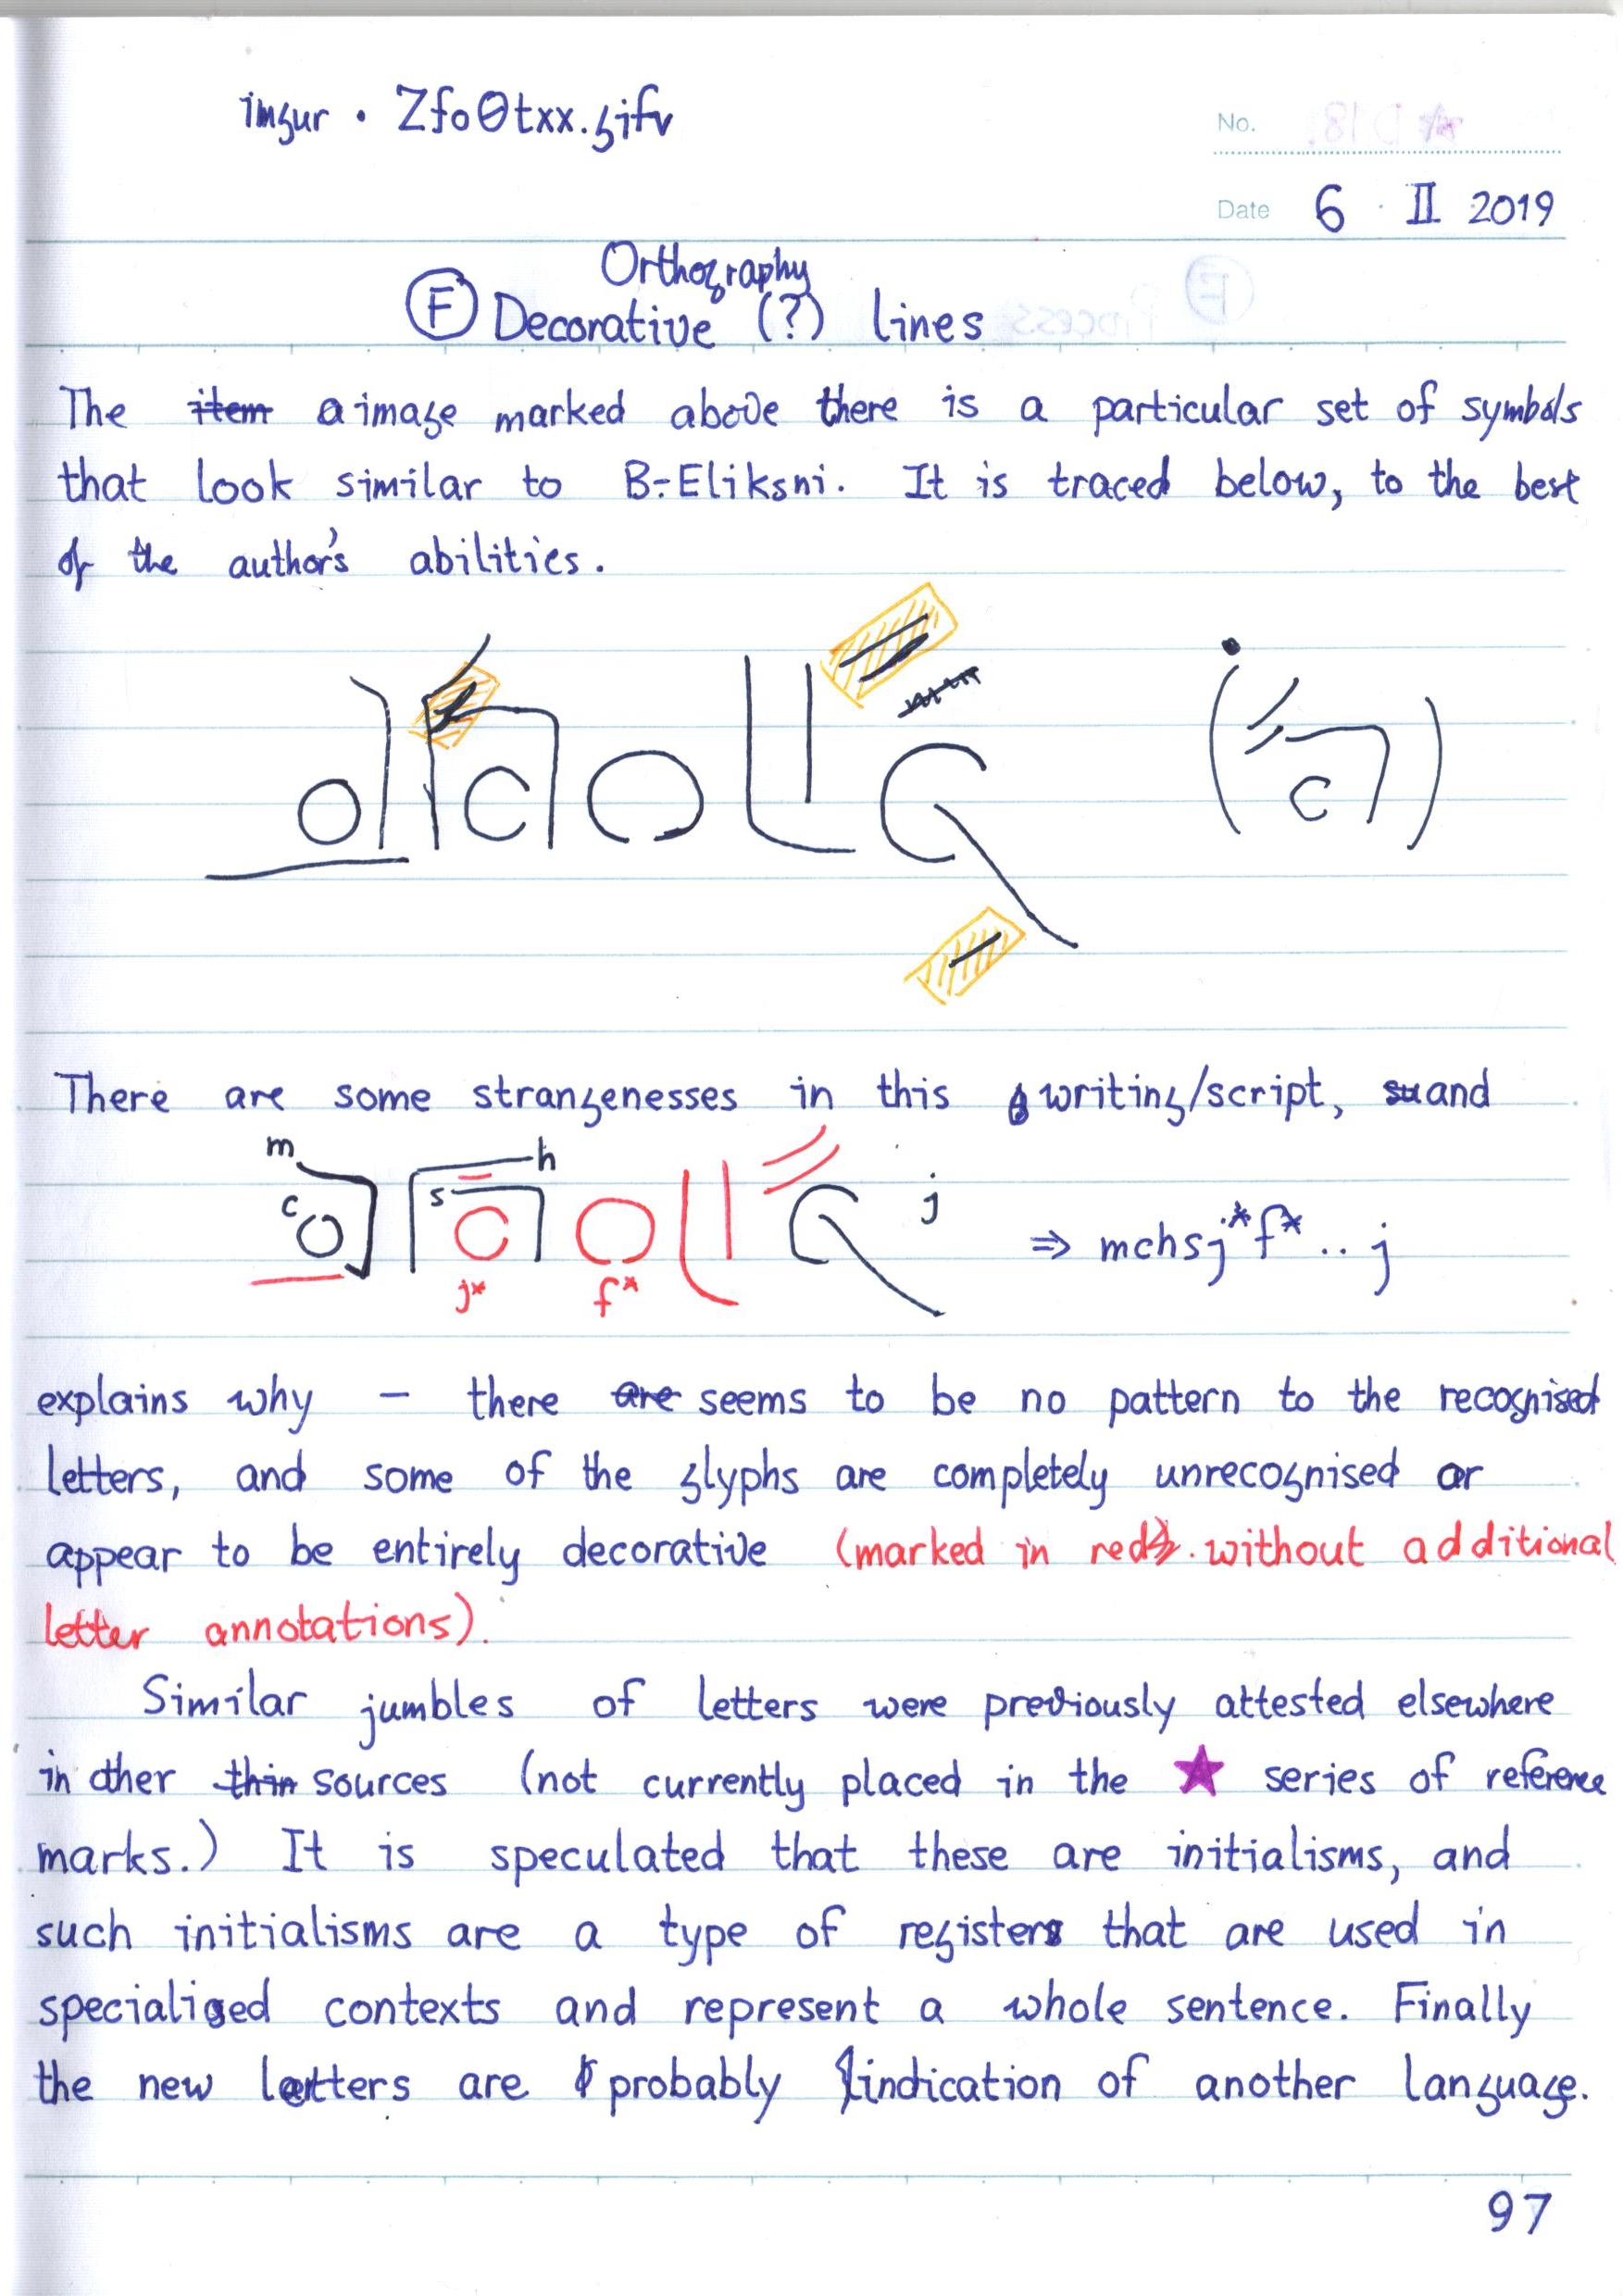 imgur · Zfo0txx.gifv
No.
Date 6 · II 2019
Orthography
F Decorative (?) lines
The item a image marked above there is a particular set of symbols
that look similar to B-Eliksni. It is traced below, to the best
of the author's abilities.
There are some strangenesses in this writing/script, su and
m h
c s j
⇒ mchsj*f*..j
j* f*
explains why – there are seems to be no pattern to the recognised
letters, and some of the glyphs are completely unrecognised or
appear to be entirely decorative (marked in red without additional
letter annotations).
Similar jumbles of letters were previously attested elsewhere
in other thin sources (not currently placed in the ★ series of reference
marks.) It is speculated that these are initialisms, and
such initialisms are a type of registers that are used in
specialised contexts and represent a whole sentence. Finally
the new letters are probably indication of another language.
97